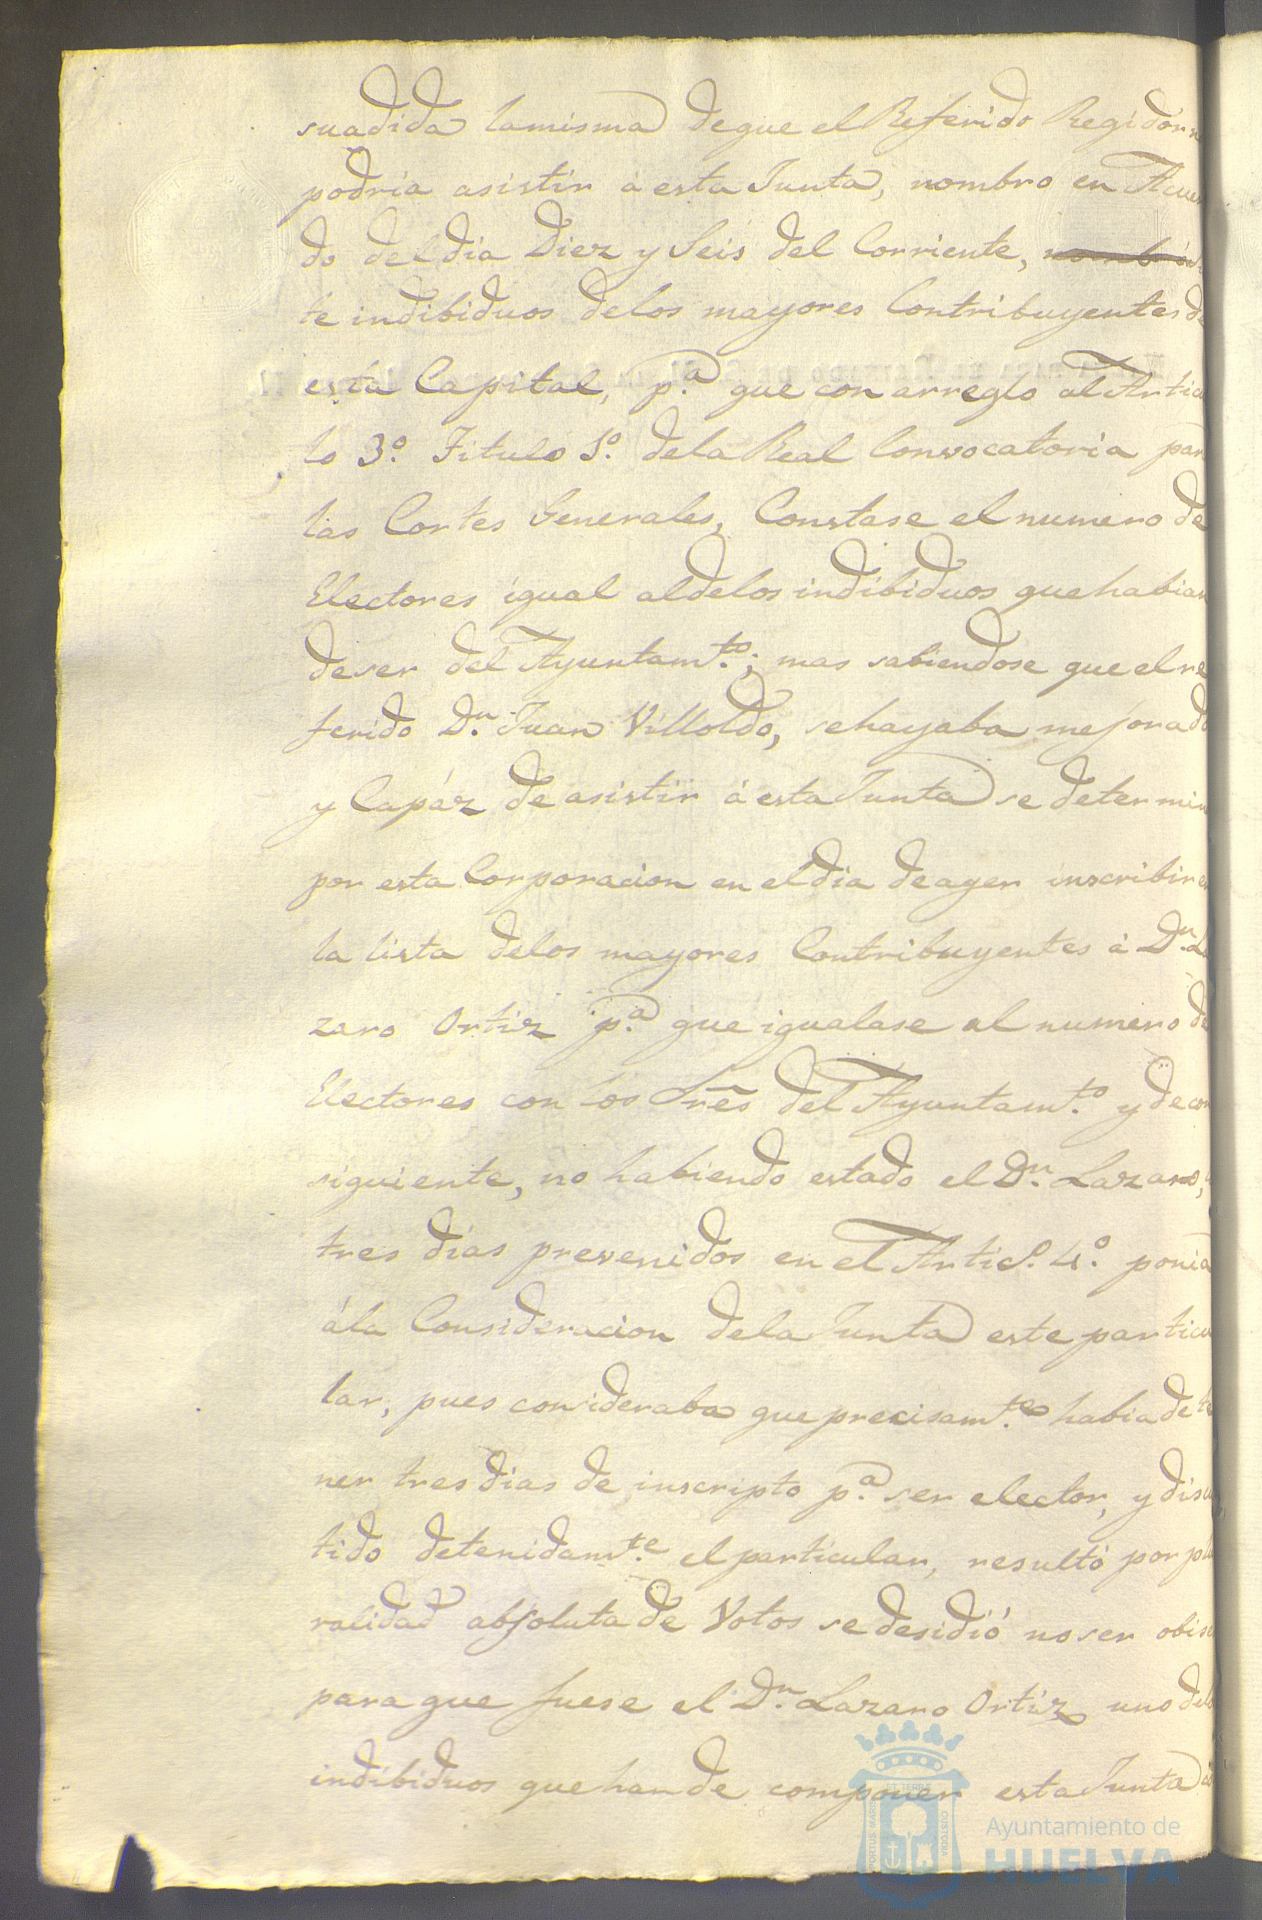 suadida lamisma deque el Referido Regidor n
podria asistir á esta Junta, nombro en Acuer
do del dia Diez y Seis del Corriente,
te indibiduos delos mayores Contribuyentes de
esta Capital, p.ª que con arreglo al Artícu
lo 3.º Titulo 1.º dela Real Convocatoria par
las Cortes Generales, Constase el numero de
Electores igual aldelos indibiduos quehabian
deser del Ayuntam.to; mas sabiendose que el re
ferido D.n Juan Villoldo, sehayaba mejorado
y Capáz de asistir á esta Junta se determin
por esta Corporacion en el dia deayer inscribir en
la lista delos mayores Contribuyentes á D.n La
zaro Ortiz p.ª que igualase al numero de
Electores con los Sres del Ayuntamt.º y decon
siguiente, no habiendo estado el D.n Lazaro,
tres dias prevenidos en el Artic.º 4.º ponia
ála Consideracion dela Junta este particu
lar, pues consideraba que precisamt.e habia de te
ner tres dias de inscripto p.ª ser elector, y discu
tido detenidamt.e el particular, resultó por plu
ralidad absoluta de Votos se desidió no ser obise
para que fuese el D.n Lazaro Ortiz uno del
indibiduos que han de componer esta Junta
PORTUS MARIS ET TERRÆ CUSTODIA
Ayuntamiento de
HUELVA